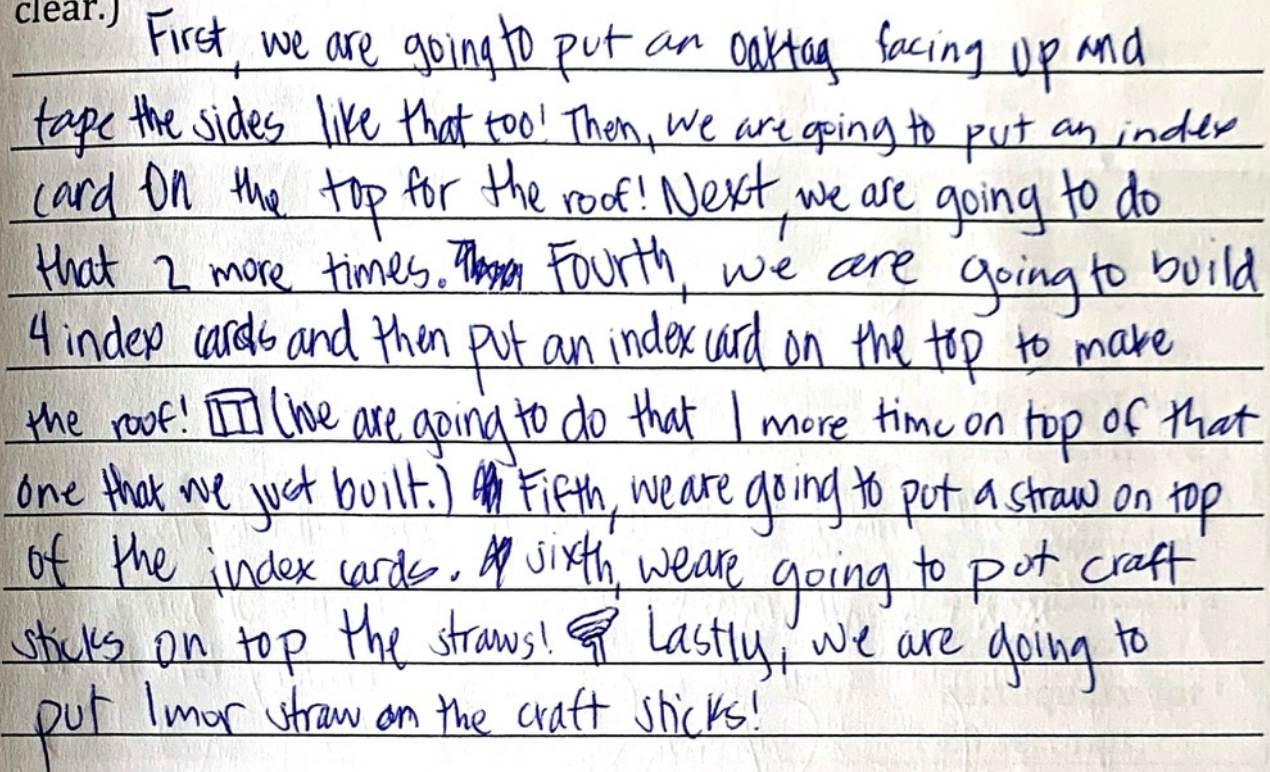 clear.)
First, we are going to put an oaktag facing up and
tape the sides like that too! Then, we are going to put an index
card on the top for the roof! Next, we are going to do
that 2 more times. Fourth, we are going to build
4 index cards and then put an index card on the top to make
the roof! (We are going to do that 1 more time on top of that
one that we just built.) Fifth, we are going to put a straw on top
of the index cards. Sixth, we are going to put craft
sticks on top the straws! Lastly, we are going to
put 1 mor straw on the craft sticks!